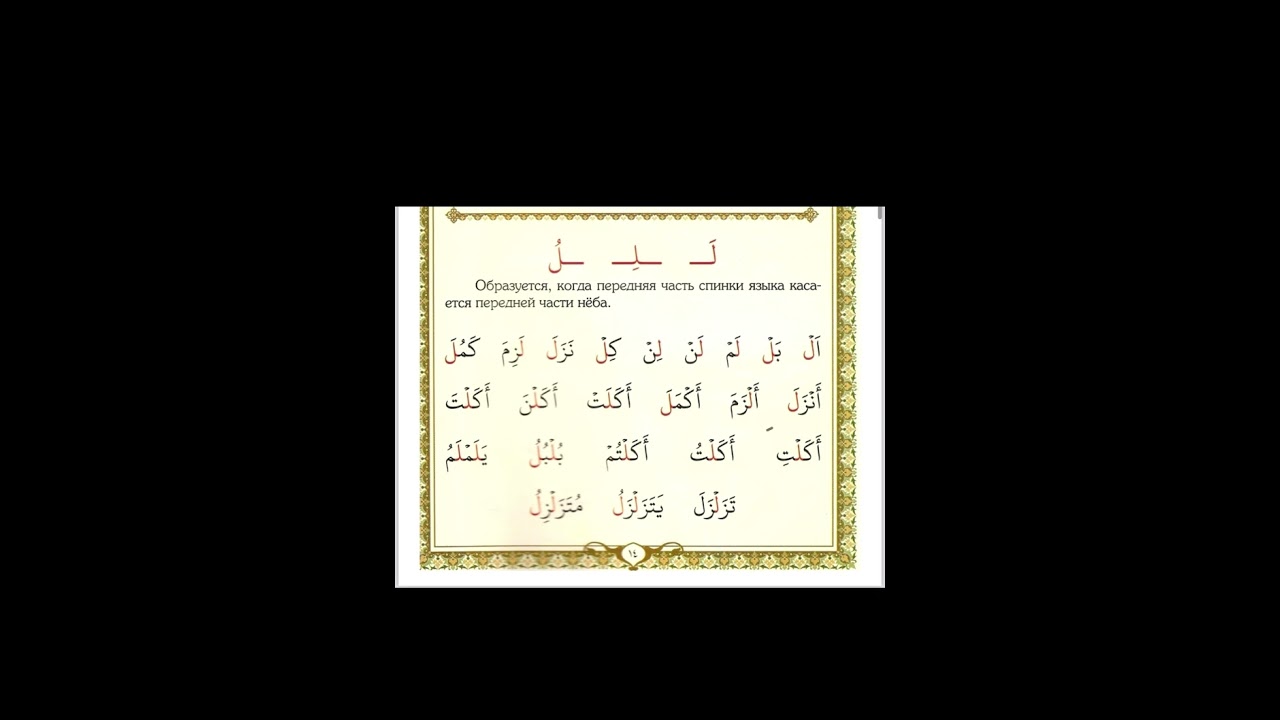 لَـ ـلِـ ـلُ
Образуется, когда передняя часть спинки языка каса-
ется передней части нёба.
اَلْ بَلْ لَمْ لَنْ لِنْ كِلْ نَزَلَ لَزِمَ كَمُلَ
أَنْزَلَ أَلْزَمَ أَكْمَلَ أَكَلَتْ أَكَلْنَ أَكَلْتَ
أَكَلْتِ أَكَلْتُ أَكَلْتُمْ بُلْبُلُ يَلَمْلَمُ
تَزَلْزَلَ يَتَزَلْزَلُ مُتَزَلْزِلُ
١٤